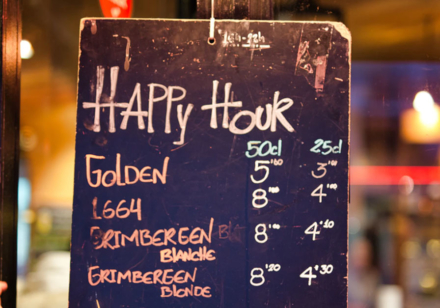 16h-22h
HAPPY HOUR
50cl 25cl
GOLDEN 5'00 3'00
1664 8'00 4'00
GRIMBEREEN 8'00 4'10
BLANCHE
GRIMBEREEN 8'20 4'30
BLONDE